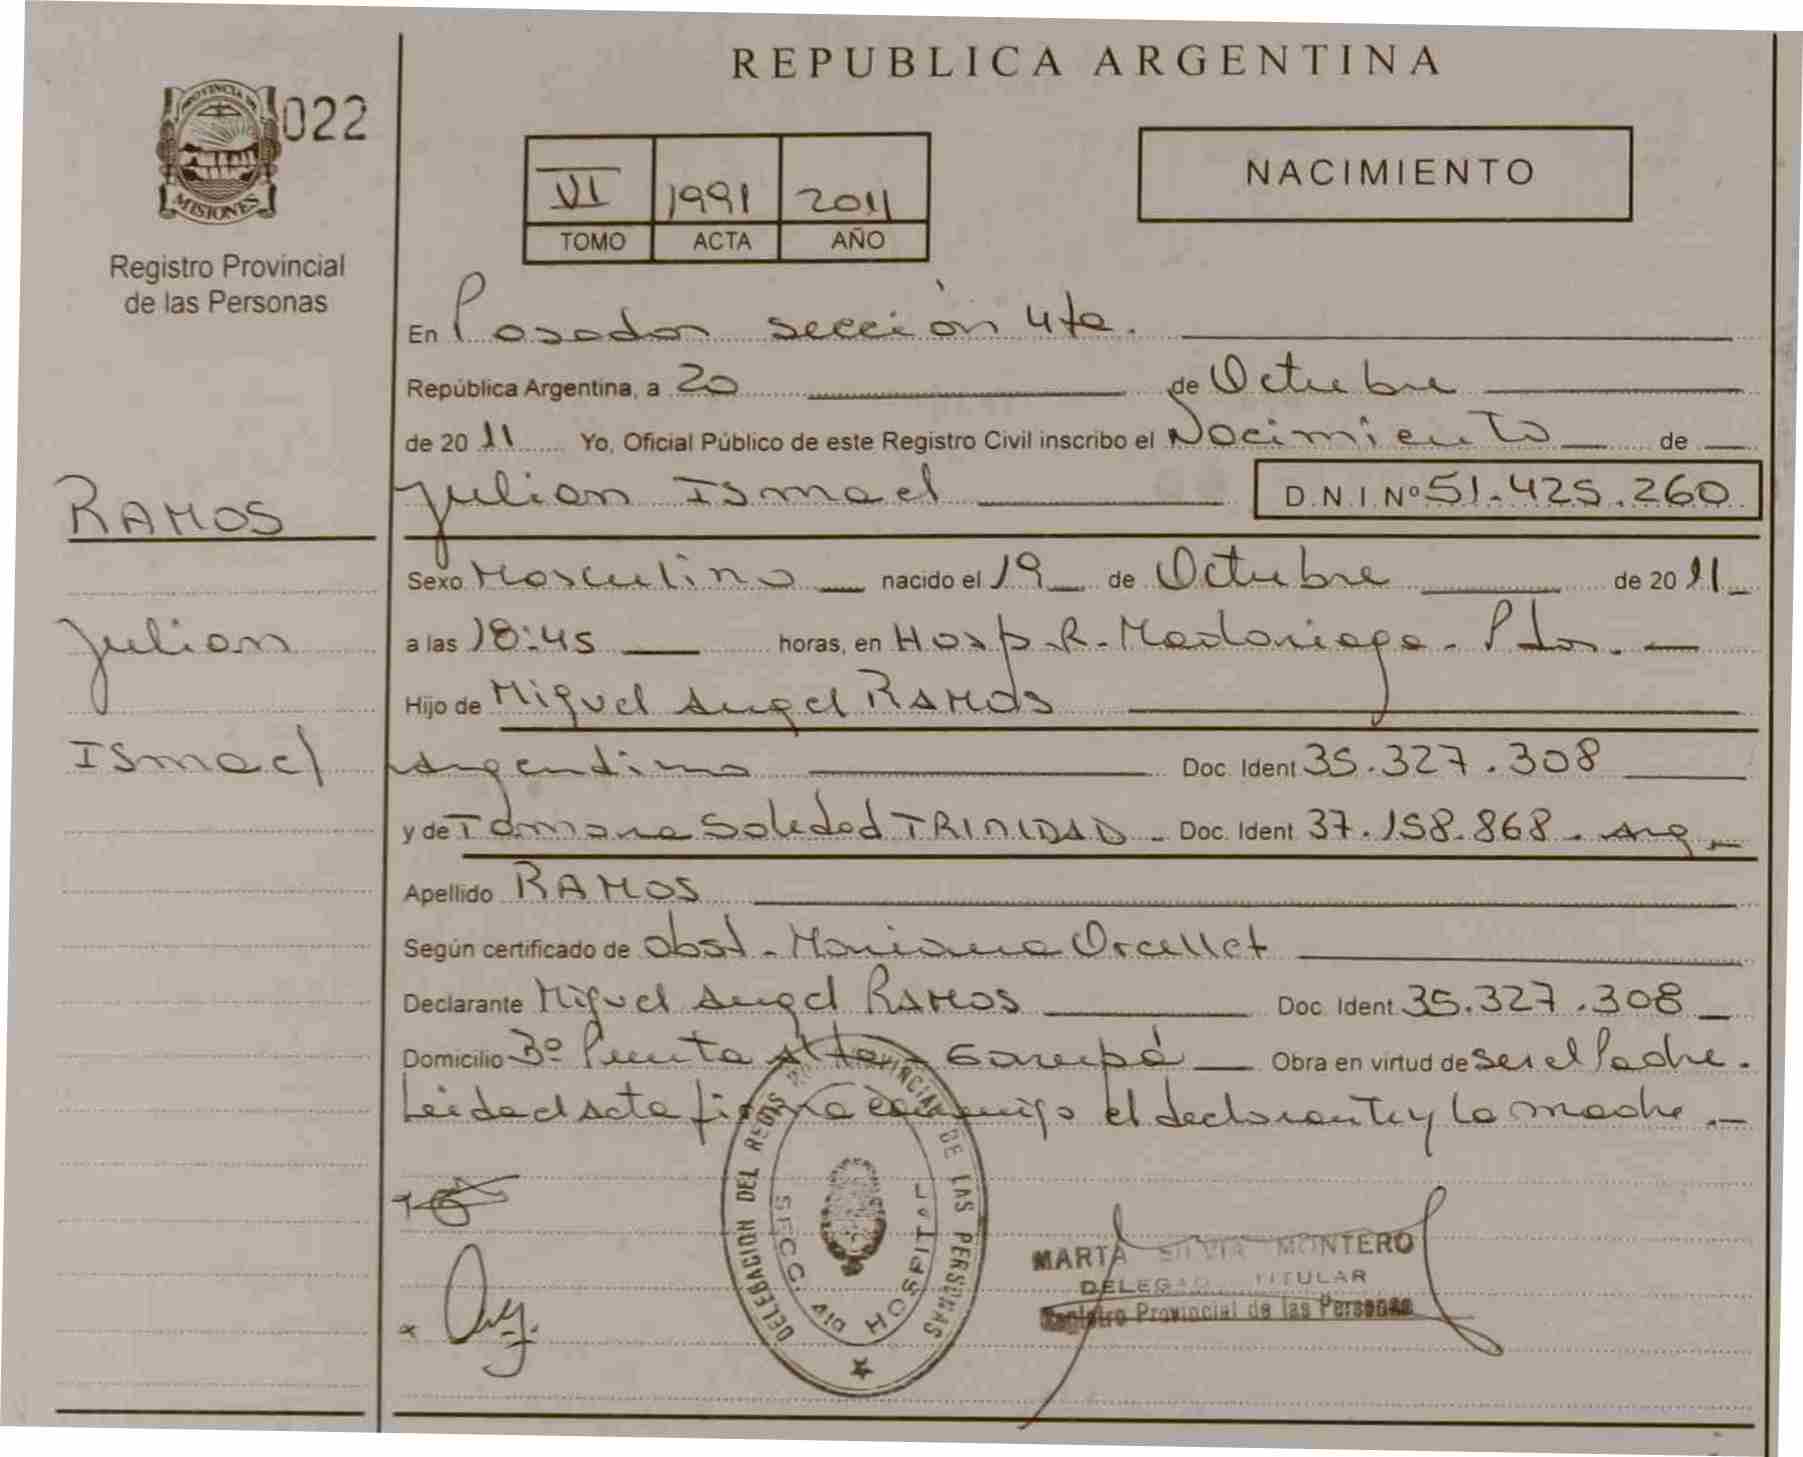 REPUBLICA ARGENTINA
PROVINCIA DE
MISIONES
022
Registro Provincial
de las Personas
VI 1991 2011
TOMO ACTA AÑO
NACIMIENTO
En Posadas sección 4ta.
República Argentina, a 20 de Octubre
de 2011 Yo, Oficial Público de este Registro Civil inscribo el Nacimiento de
RAMOS
Julian Ismael D.N.I. Nº 51.425.260
Sexo Masculino nacido el 19 de Octubre de 2011
Julian
a las 18:45 horas, en Hosp. R. Madariaga - Pdas.
Hijo de Miguel Angel RAMOS
Ismael
Argentino Doc. Ident 35.327.308
y de Tamara Soledad TRINIDAD - Doc. Ident 37.158.868 - Arg
Apellido RAMOS
Según certificado de obst. Mariana Orcellet
Declarante Miguel Angel RAMOS Doc. Ident 35.327.308
Domicilio 3º Punta Alta - Garupá Obra en virtud de ser el Padre.
Leida el Acta firma conmigo el declarante y la madre.
DELEGACION DEL REGISTRO PROVINCIAL DE LAS PERSONAS
SECC. 4ta HOSPITAL
MARTA SILVIA MONTERO
DELEGADA TITULAR
Registro Provincial de las Personas